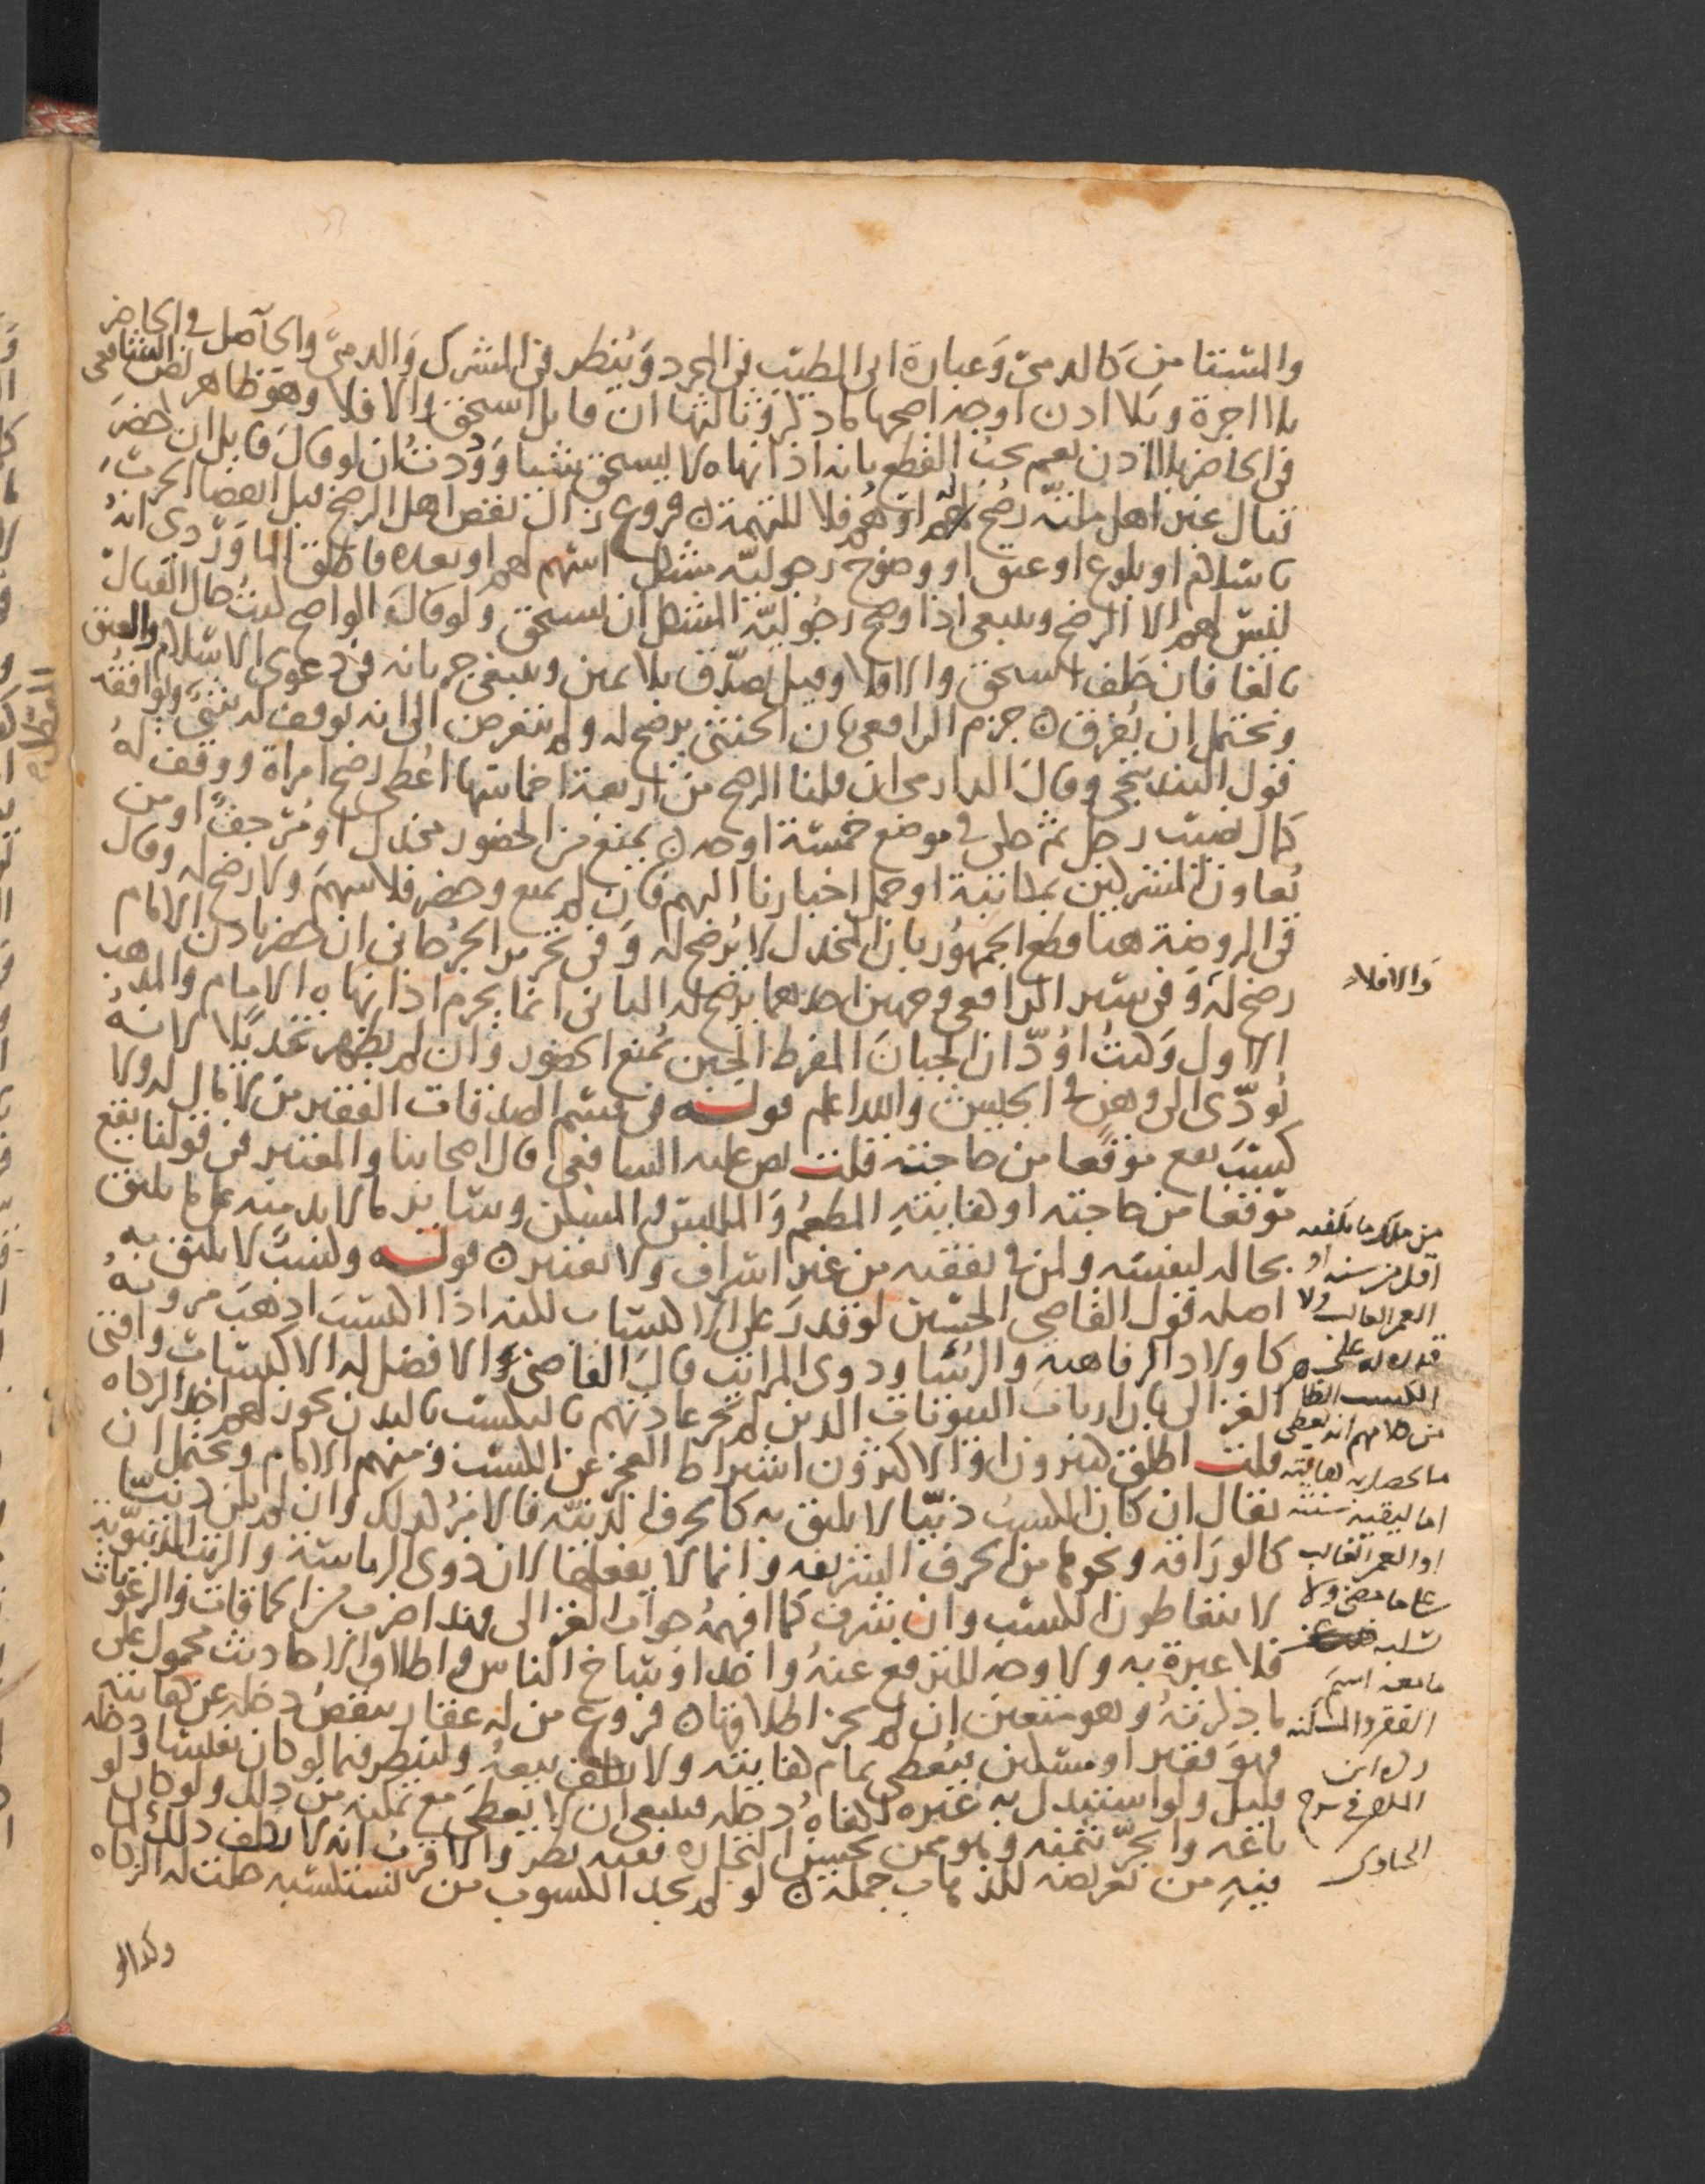 والمستامن كالذمي وعبارة ابي الطيب في المجرد وينظر في المشرك والذمي والحاصل في الحاضر
بلا اجرة وبلا اذن اوجه اصحها ما ذكر وثالثها ان قاتل استحق والا فلا وهو ظاهر نص الشافعي
في الحاضر بلا اذن نعم يجب القطع بانه اذا نهاه لا يستحق شيا ولو قال قايل ان حضر
قتال غير اهل ملته رضخ له او هم فلا للتهمة فروع زال نقص اهل الرضخ قبل انقضا الحرب
باسلام او بلوغ او عتق او وضوح رجولية مشكل اسهم لهم او بعده فاطلق الماوردي انه
ليس لهم الا الرضخ وينبغي اذا وضح رجولية المشكل ان يستحق ولو قال الواضح كنت حال القتال
بالغا فان حلف استحق والا فلا وقيل يصدق بلا يمين وينبغي جريانه في دعوى الاسلام والعتق
ويحتمل ان يفرق جزم الرافعي بان الخنثى يرضخ له ولم يتعرض الى انه يوقف له شي ويوافقه
قول البندنيجي وقال الدارمي ان قلنا الرضخ من اربعة اخماسها اعطي رضخ امراة ووقف له
كمال نصيب رجل ثم حكى في موضع خمسة اوجه يمنع من الحضور مخذل او مرجف او من
يعاون المشركين بمكاتبة او حمل اخبارنا اليهم فان لم يمنع وحضر فلا سهم ولا رضخ له وقال
في الروضة هنا قطع الجمهور بان المخذل لا يرضخ له وفي تحرير الجرجاني ان حضر باذن الامام
رضخ له وفي سير الرافعي وجهين احدهما يرضخ له الثاني انما يحرم اذا نهاه الامام والمذهب
والا فلا
الاول وكنت اود ان الجبان المفرط الجبن يمنع الحضور وان لم يظهر تخذيلا لانه
يودي الى وهن في الجيش والله اعلم قوله في قسم الصدقات الفقير من لا مال له ولا
كسب يقع موقعا من حاجته قلت نص عليه الشافعي قال اصحابنا والمعتبر في قولنا يقع
موقعا من حاجته او كفايته المطعم والملبس والمسكن وساير ما لا بد منه على ما يليق
بحاله لنفسه ولمن في نفقته من غير اسراف ولا تقتير قوله وكسبا لا يليق به
اصله قول القاضي الحسين لو قدر على الاكتساب لكنه اذا اكتسب اذهب مروته
كاولاد الرفاهية والرؤسا وذوي المراتب قال القاضي والافضل له الاكتساب وافتى
الغزالي بان ارباب البيوتات الذين لم تجر عادتهم بالكسب بالبدن يجوز لهم اخذ الزكاة
قلت اطلق كثيرون او الاكثرون اشتراط العجز عن الكسب ومنهم الامام ويحتمل ان
يقال ان كان الكسب دنيا لا يليق به كالحرف الدنية فالامر كذلك وان لم يكن دنيا
كالوراقة ونحوها من الحرف الشريفة وانما لا يفعلها لان ذوي الرياسة والرتب الدنيوية
لا يتعاطون الكسب وان شرف كما افهمه جواب الغزالي فهذا ضرب من الحماقات والرعونات
فلا عبرة به ولا وجه للترفع عنه واخذ اوساخ الناس واطلاق الاحاديث محمول على
ما ذكرته وهو متعين ان لم يجز اطلاقها فروع من له عقار ينقص دخله عن كفايته
فهو فقير او مسكين فيعطى تمام كفايته ولا يكلف بيعه ولينظر فيما لو كان نفيسا ودخله
قليل ولو استبدل به غيره كفاه دخله فينبغي ان لا يعطى مع تمكنه من ذلك ولو كان لو
باعه واتجر بثمنه وهو ممن يحسن التجارة ففيه نظر والاقرب انه لا يكلف ذلك لما
فيه من تعريضه للذهاب جملة لو لم يجد الكسوب من يستكسبه حلت له الزكاة
من ملك ما يكفيه
اقل من سنة او
العمر الغالب ولا
قدرة له على
الكسب الظا هر
من كلامهم انه يعطى
ما يحصل به كفايته
اما لبقية سنته
او العمر الغالب
على ما مضى ولا
يسلبه
ما معه اسم
الفقر والمسكنة
ذكره ابن
الملقن في شرح
الحاوي
وكذا لو